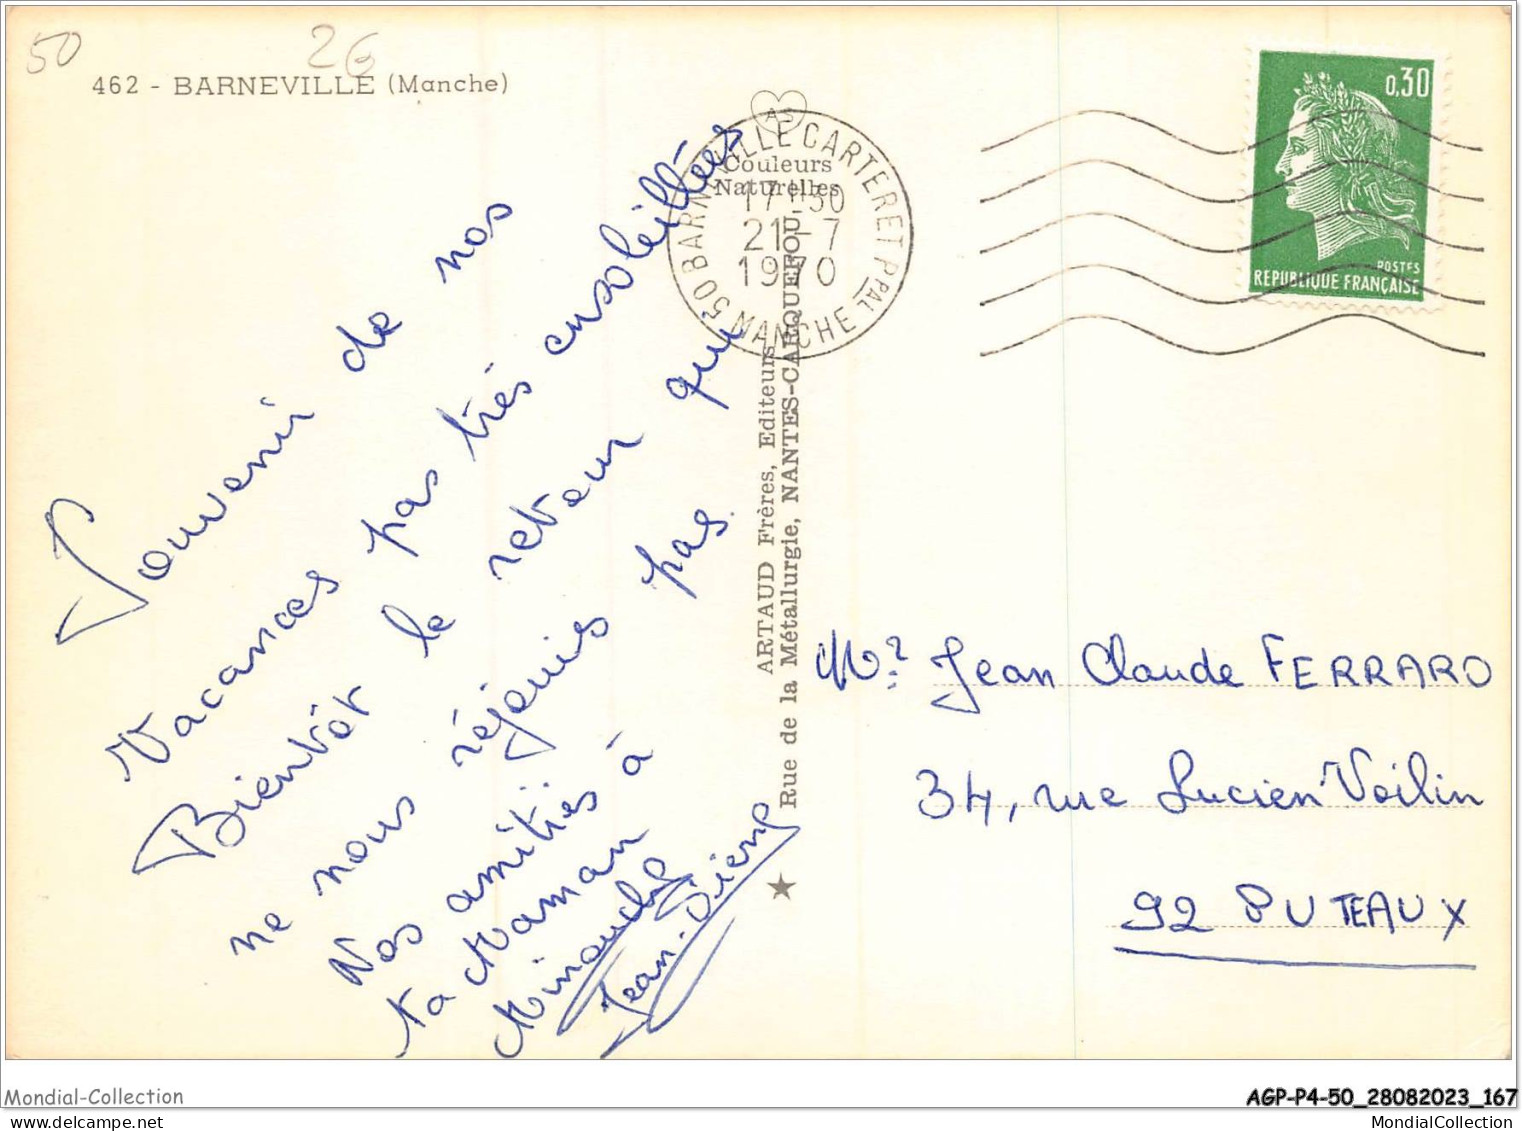 50
26
462 - BARNEVILLE (Manche)
AS
Couleurs
Naturelles
50 BARNEVILLE CARTERET PPAL
MANCHE
17H30
21-7
1970
0,30
POSTES
REPUBLIQUE FRANÇAISE
Souvenir de nos
Vacances pas très ensoleillées
Bientôt le retour qui
ne nous réjouis pas.
Nos amitiés à
ta Maman
Minouche
Jean-Pierre
ARTAUD Frères, Editeurs
Rue de la Métallurgie, NANTES-CARQUEFOU
Mr Jean Claude FERRARO
34, rue Lucien Voilin
92 PUTEAUX
Mondial-Collection
AGP-P4-50_28082023_167
MondialCollection